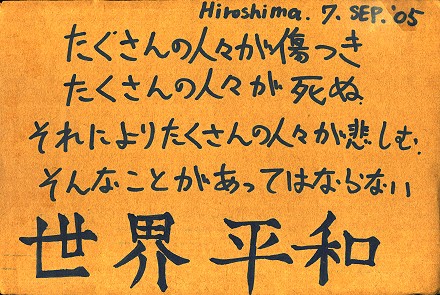 Hiroshima. 7. SEP. '05
たくさんの人々が傷つき
たくさんの人々が死ぬ.
それによりたくさんの人々が悲しむ.
そんなことがあってはならない
世界平和